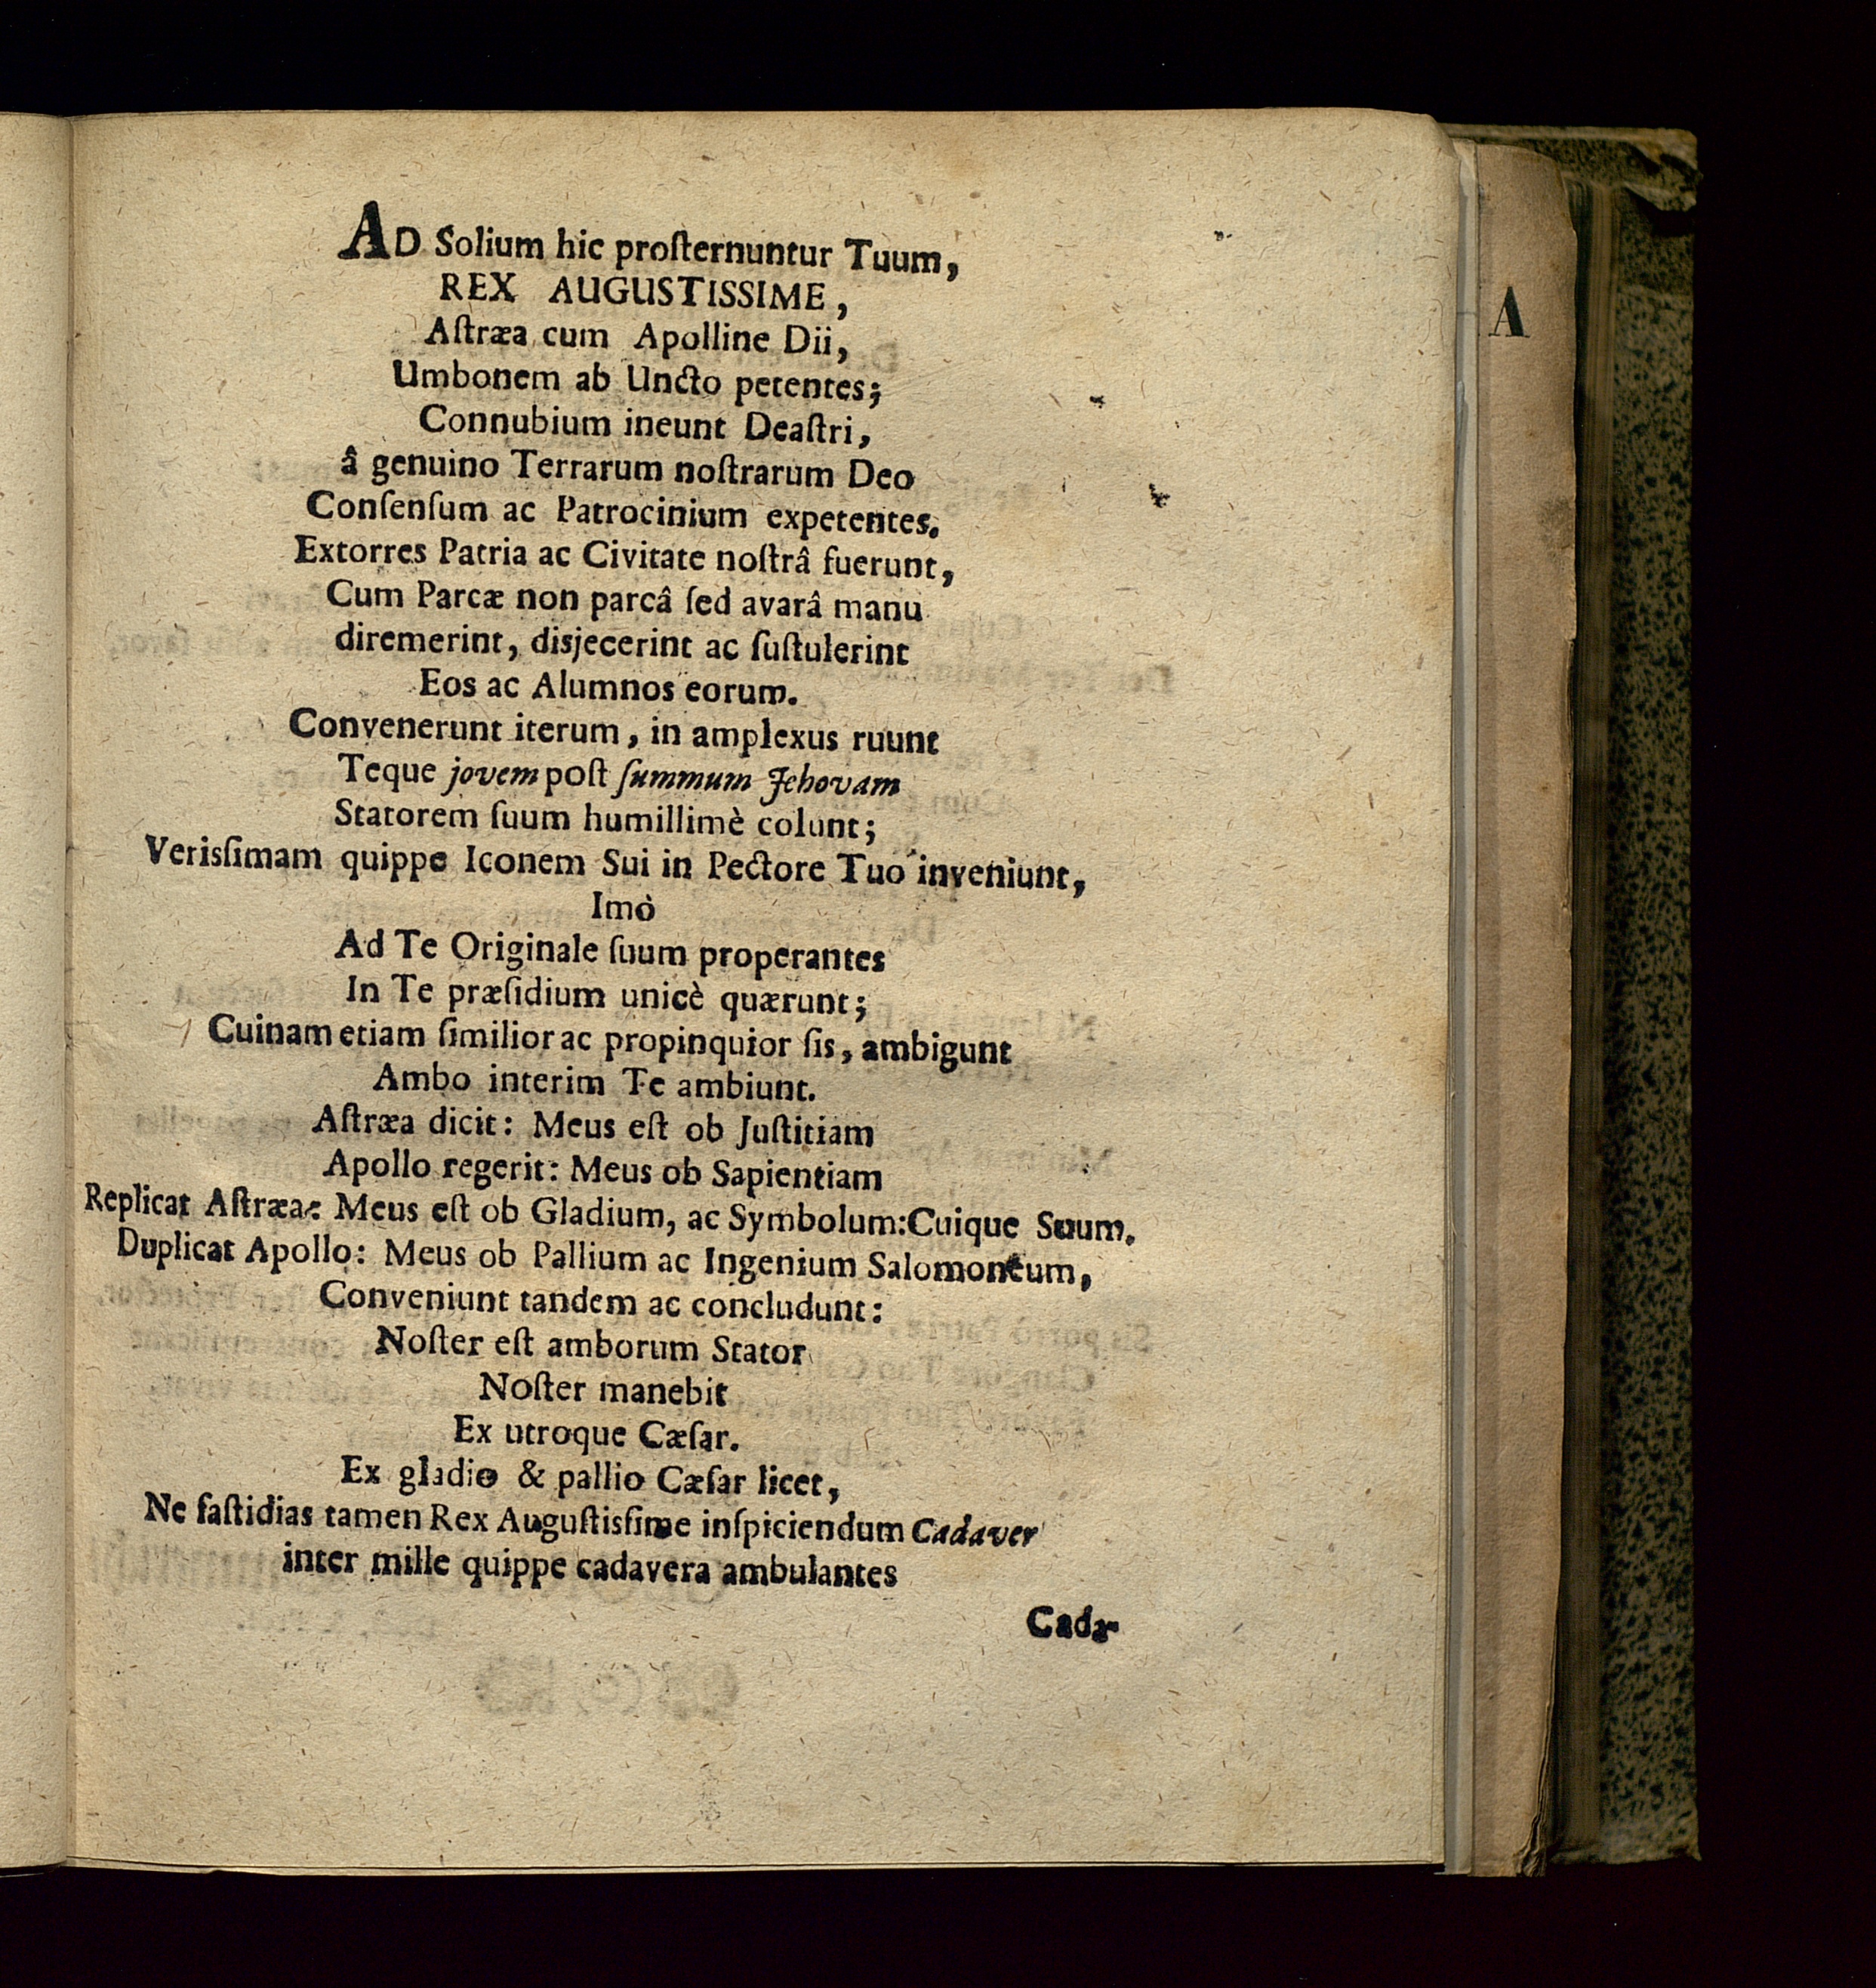 AD Solium hic proſternuntur Tuum,
REX AUGUSTISSIME,
Aſtræa cum Apolline Dii,
Umbonem ab Uncto petentes;
Connubium ineunt Deaſtri,
â genuino Terrarum noſtrarum Deo
Conſenſum ac Patrocinium expetentes.
Extorres Patria ac Civitate noſtrâ fuerunt,
Cum Parcæ non parcâ ſed avarâ manu
diremerint, disjecerint ac ſuſtulerint
Eos ac Alumnos eorum.
Convenerunt iterum, in amplexus ruunt
Teque jovem poſt ſummum Jehovam
Statorem ſuum humillimè colunt;
Verisſimam quippe Iconem Sui in Pectore Tuo inveniunt,
Imò
Ad Te Originale ſuum properantes
In Te præſidium unicè quærunt;
Cuinam etiam ſimilior ac propinquior ſis, ambigunt
Ambo interim Te ambiunt.
Aſtræa dicit: Meus eſt ob Juſtitiam
Apollo regerit: Meus ob Sapientiam
Replicat Aſtræa: Meus eſt ob Gladium, ac Symbolum: Cuique Suum.
Duplicat Apollo: Meus ob Pallium ac Ingenium Salomoneum,
Conveniunt tandem ac concludunt:
Noſter eſt amborum Stator
Noſter manebit
Ex utroque Cæſar.
Ex gladio & pallio Cæſar licet,
Ne faſtidias tamen Rex Auguſtisſime inſpiciendum Cadaver
inter mille quippe cadavera ambulantes
Cada-
A